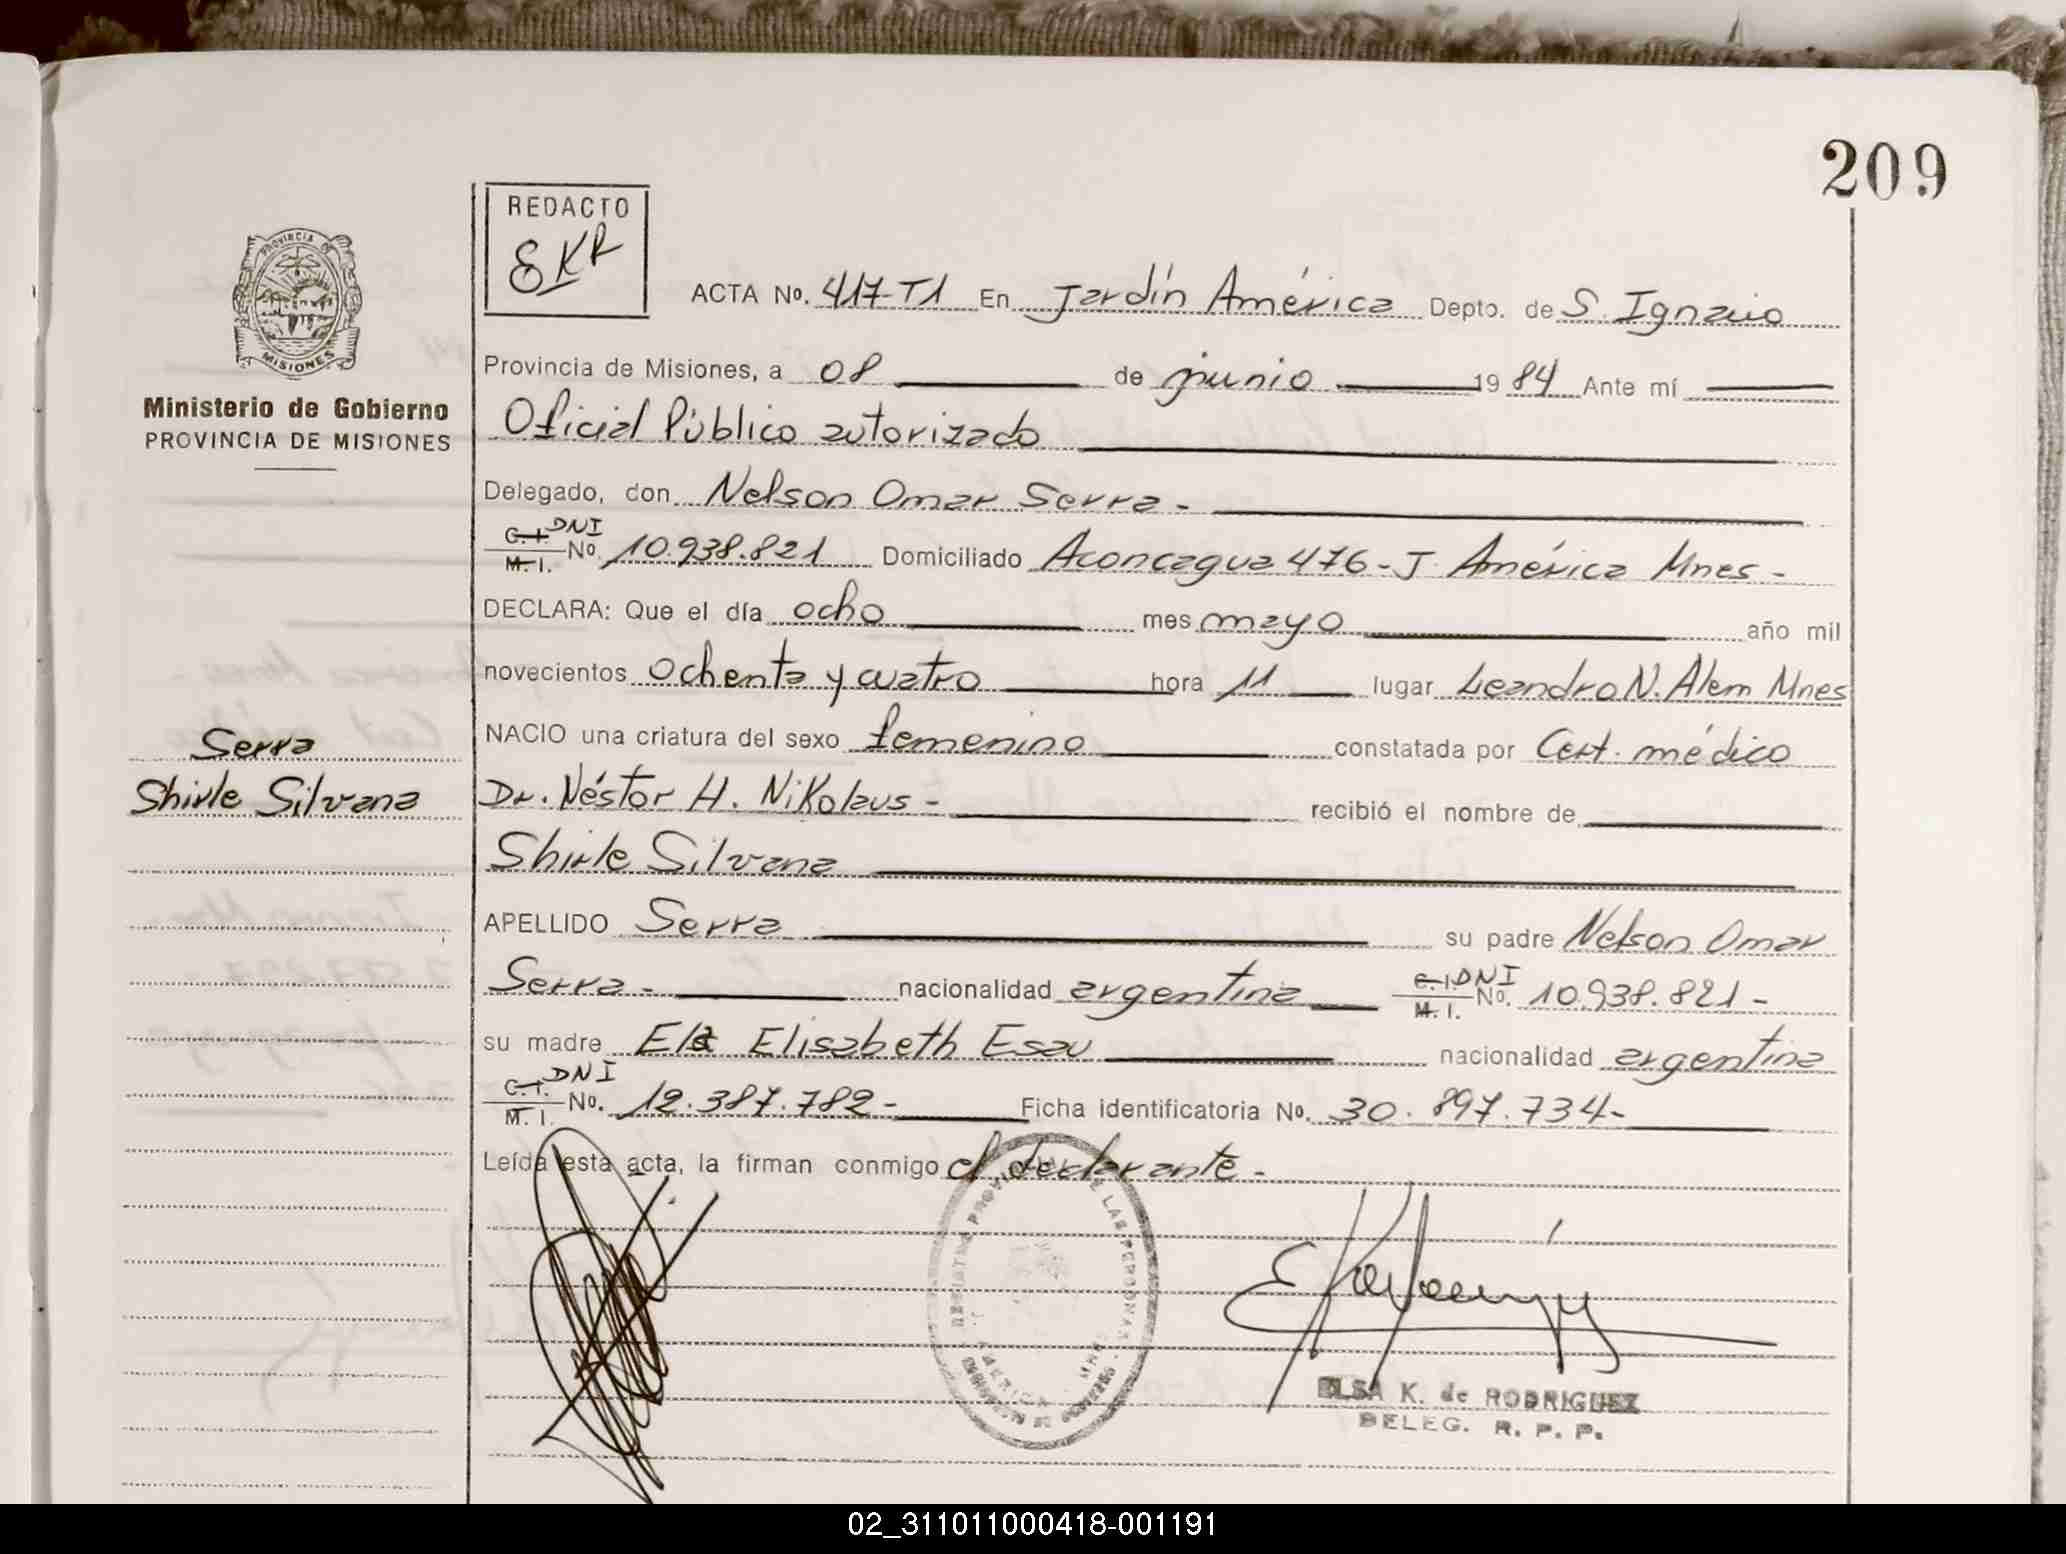 209
REDACTO
EKR
PROVINCIA DE
MISIONES
Ministerio de Gobierno
PROVINCIA DE MISIONES
ACTA No. 417-T1 En Jardín América Depto. de S. Ignacio
Provincia de Misiones, a 08 de junio 1984 Ante mí
Oficial Público autorizado
Delegado, don Nelson Omar Serra -
C. I. DNI
M. I. No. 10.938.821 Domiciliado Aconcagua 476 - J. América Mnes -
DECLARA: Que el día ocho mes mayo año mil
novecientos ochenta y cuatro hora 11 lugar Leandro N. Alem Mnes
Serra
Shirle Silvana
NACIO una criatura del sexo femenino constatada por Cert. médico
Dr. Néstor H. Nikolaus - recibió el nombre de
Shirle Silvana
APELLIDO Serra su padre Nelson Omar
Serra - nacionalidad argentina C. I. DNI M. I. No. 10.938.821 -
su madre Ela Elisabeth Esau nacionalidad argentina
C. I. DNI
M. I. No. 12.387.782 - Ficha identificatoria No. 30.897.734 -
Leída esta acta, la firman conmigo el declarante -
REGISTRO PROVINCIAL DE LAS PERSONAS
AMERICA - MNES
ELSA K. de RODRIGUEZ
DELEG. R. P. P.
02_311011000418-001191